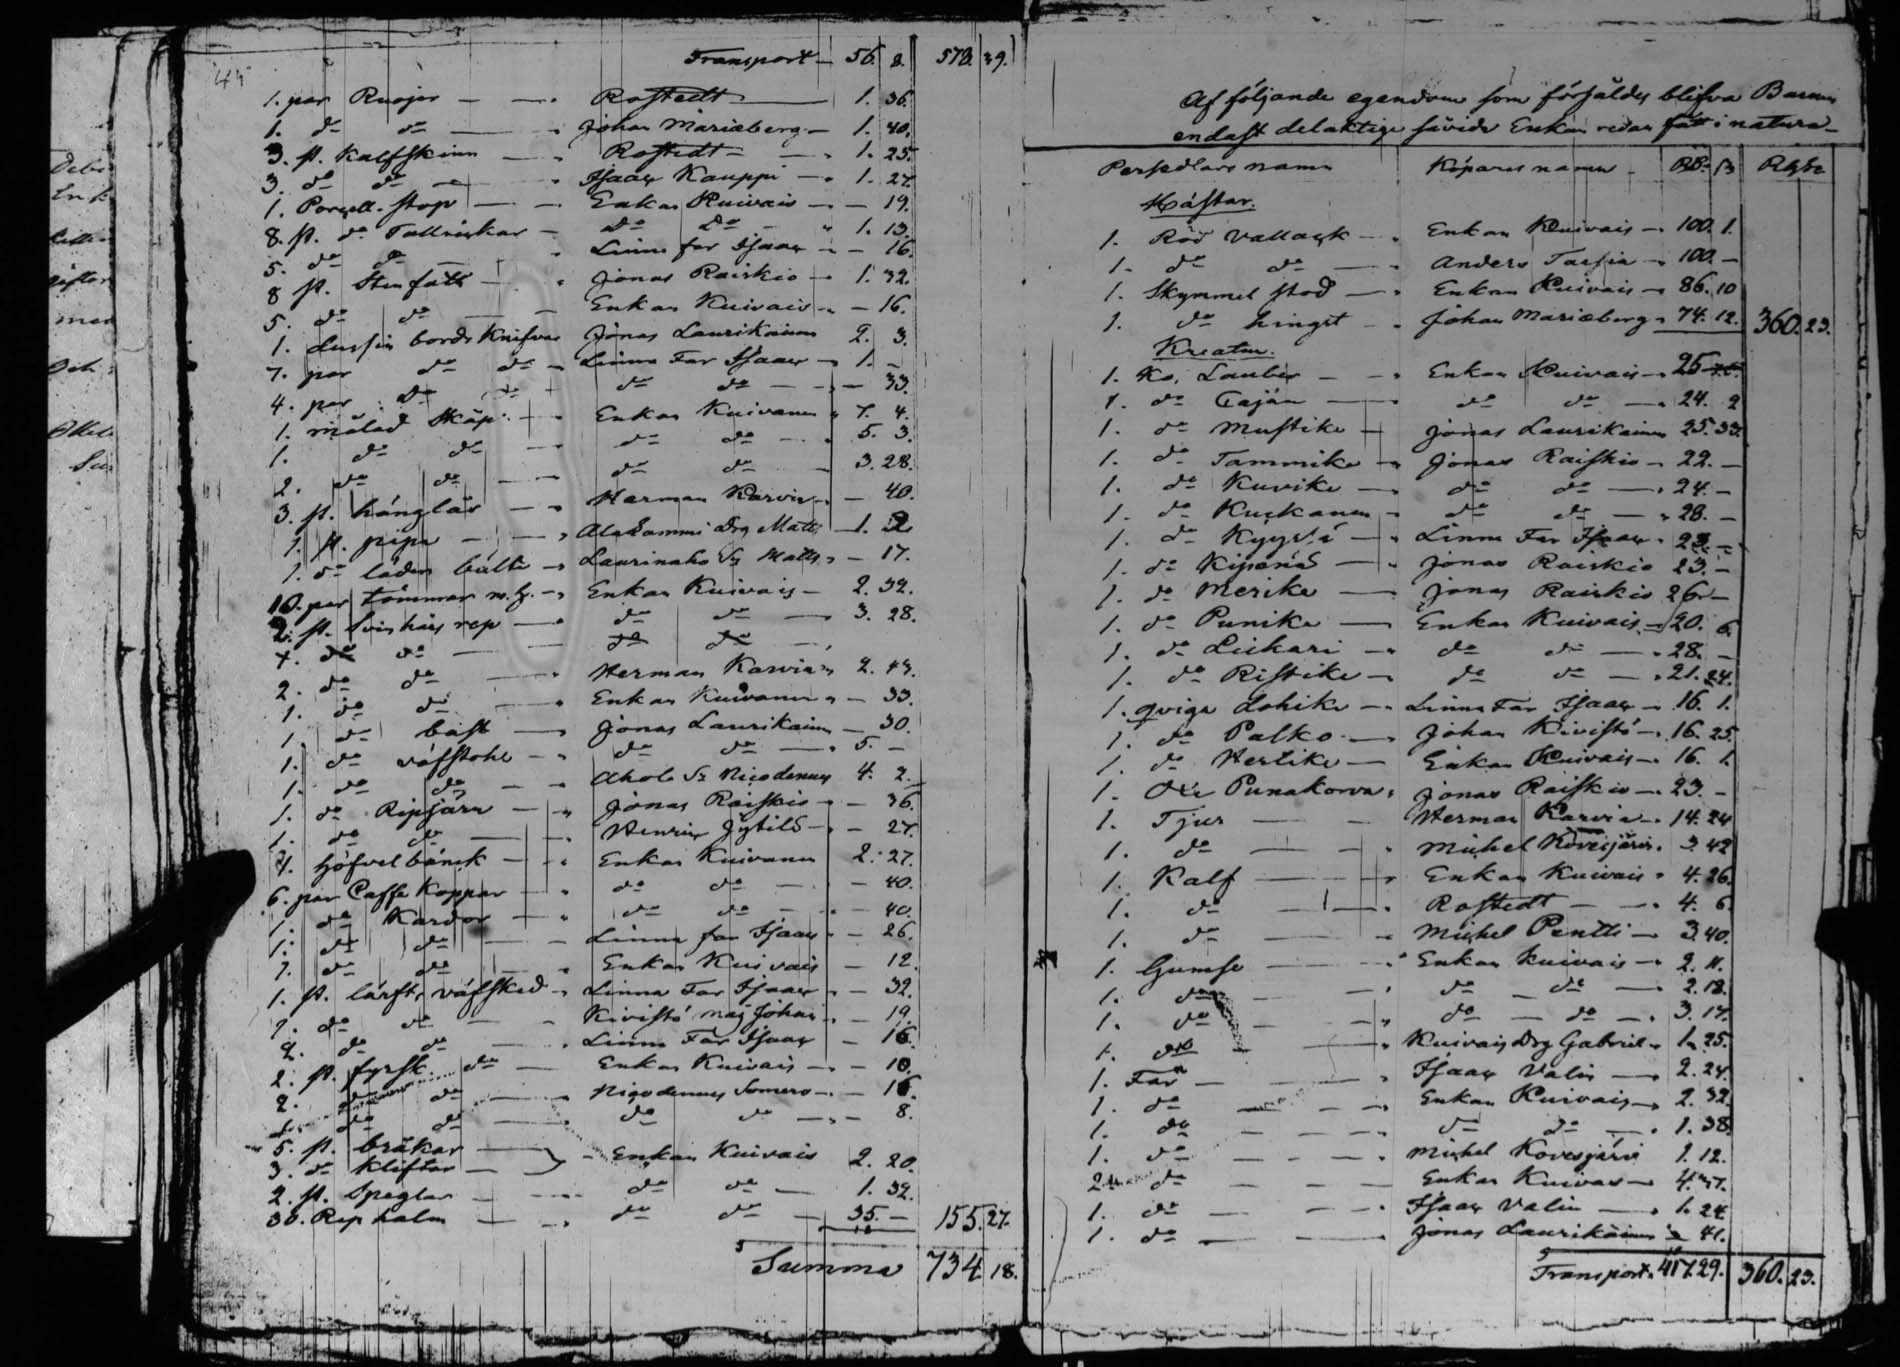 45
Transport — 56. 8. 578. 39.
1. par Ruojor — Rostedt — 1. 36.
1. do do — Johan Mariæberg — 1. 40.
3. st. Kalfskinn — Rostedt — 1. 25.
3. do do — Isaac Kauppi — 1. 27.
1. Porsell. stop — Enkan Kuivais — — 19.
8. st. do Tallrickar — do do 1. 13.
5. do do — Linna far Isaac — — 16.
8 st. Stenfatt — Jonas Raiskio — 1. 32.
5. do do — Enkan Kuivais — — 16.
1. dussin bords Knifvar Jonas Laurikainen 2. 3.
7. par do do — Linna Far Isaac — 1. —
4. par do do — do do — — 33.
1. målad Skåp — Enkan Kuivanen 7. 4.
1. do do — do do — 5. 3.
2. do do — do do — 3. 28.
3. st. hänglås — Herman Karvia — — 40.
1. st. pipa — Alatammi Drg Matts — 1. 2
1. do läder bälte — Laurinaho Sr Matts — — 17.
10. par tömmar — Enkan Kuivais — 2. 32.
2. st. Svinhårs rep — do do — 3. 28.
1. do do — do do —
2. do do — Herman Karvia — 2. 43.
1. do do — Enkan Kuivanen — — 33.
1. do bast — Jonas Laurikainen — 30.
1. do väfstohl — do do — 5. —
1. do do — Ahola Sr Nicodemus 4. 2.
1. do Ripjärn — Jonas Raiskio — — 36.
1. do do — Henric Jytilä — — 27.
1. Höfvelbänck — Enkan Kuivanen 2. 27.
6. par Caffe Koppar — do do — — 40.
1. do Kardor — do do — — 40.
1. do do — Linna far Isaac — — 26.
1. do do — Enkan Kuivais — 12.
1. st. lärfts väfsked — Linna Far Isaac — — 32.
1. do do — Kivistö mag Johan — — 19.
2. do do — Linna Far Isaac — 16.
2. st. fyrsk. do — Enkan Kuivais — — 10.
2. do do — Nicodemus Somero — — 16.
1. do do — do do — — 8.
5. st. bråkar —
3. do Kliftor — Enkan Kuivais 2. 20.
2. st. Speglar — do do — 1. 32.
30. Rep halm — do do — 35. — 155. 27.
Summa 734. 18.
Af följande egendom som försåldes blifva Barnen
endast delaktige såvida Enkan redan fått i natura —
Persedlars namn Köpares namn — RD. ß Rgds
Hästar.
1. Röd Vallack — Enkan Kuivais — 100. 1.
1. do do — Anders Tassia — 100. —
1. Skymmel stod — Enkan Kuivais — 86. 10
1. do hingst — Johan Mariæberg — 74. 12. 360. 23.
Kreatur.
1. Ko. Laubis — Enkan Kuivais — 25
1. do Tajan — do do — 24. 2
1. do Mustike — Jonas Laurikainen 25. 33.
1. do Tammike — Jonas Raiskio — 22. —
1. do Kuvike — do do — 24. —
1. do Kuckanen — do do — 28. —
1. do Kyystä — Linna Far Isaac — 23. —
1. do Kipänä — Jonas Raiskio 23. —
1. do Merike — Jonas Raiskio 26. —
1. do Punike — Enkan Kuivais — 20. 6.
1. do Liekari — do do — 28. —
1. do Ristike — do do — 21. 24.
1. qviga Lohike — Linna Far Isaac — 16. 1.
1. do Palko — Johan Kivistö — 16. 25.
1. do Hertike — Enkan Kuivais — 16. 1.
1. Oxe Punakorva — Jonas Raiskio — 23. —
1. Tjur — Herman Karvia — 14. 24
1. do — Michel Kovesjärvi. 3. 42
1. Kalf — Enkan Kuivais — 4. 26.
1. do — Rostedt — 4. 6.
1. do — Michel Pentti — 3. 40.
1. Gumse — Enkan Kuivais — 2. 11.
1. do — do do — 2. 18.
1. do — do — do — 3. 17.
1. do — Kuivais Drg Gabriel — 1. 25.
1. Far — Isaac Valin — 2. 24.
1. do — Enkan Kuivais — 2. 32.
1. do — do do — 1. 38.
1. do — Michel Kovesjärvi 1. 12.
2. do — Enkan Kuivais — 4.
1. do — Isaac Valin — 1. 24
1. do — Jonas Laurikainen — 41.
Transport. 417. 29. 360. 23.